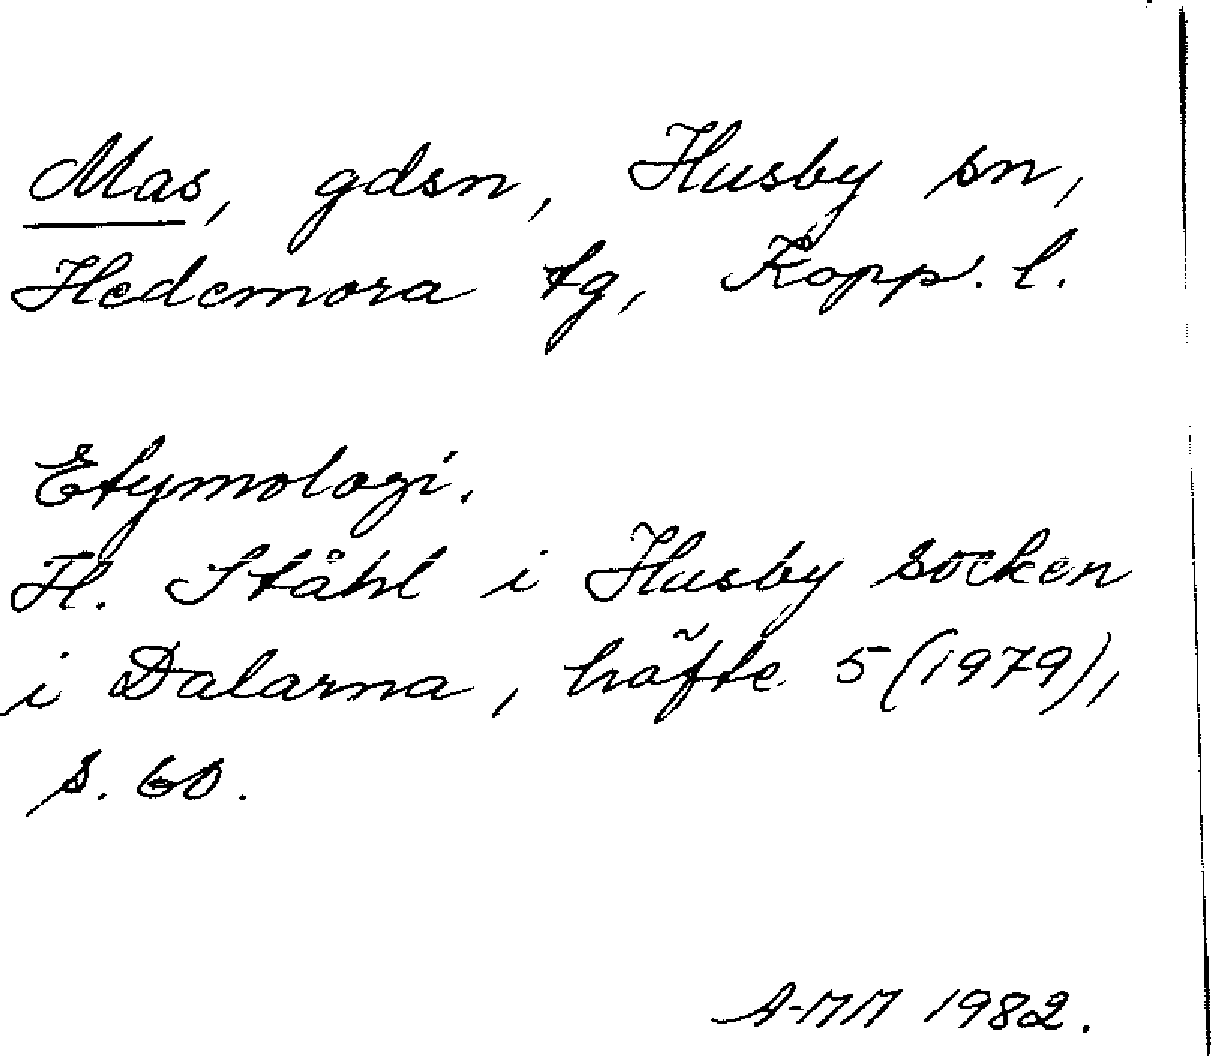 Mas, gdsn, Husby sn,
Hedemora tg, Kopp. l.
Etymologi.
H. Ståhl i Husby socken
i Dalarna, häfte 5 (1979),
s. 60.
A-MM 1982.